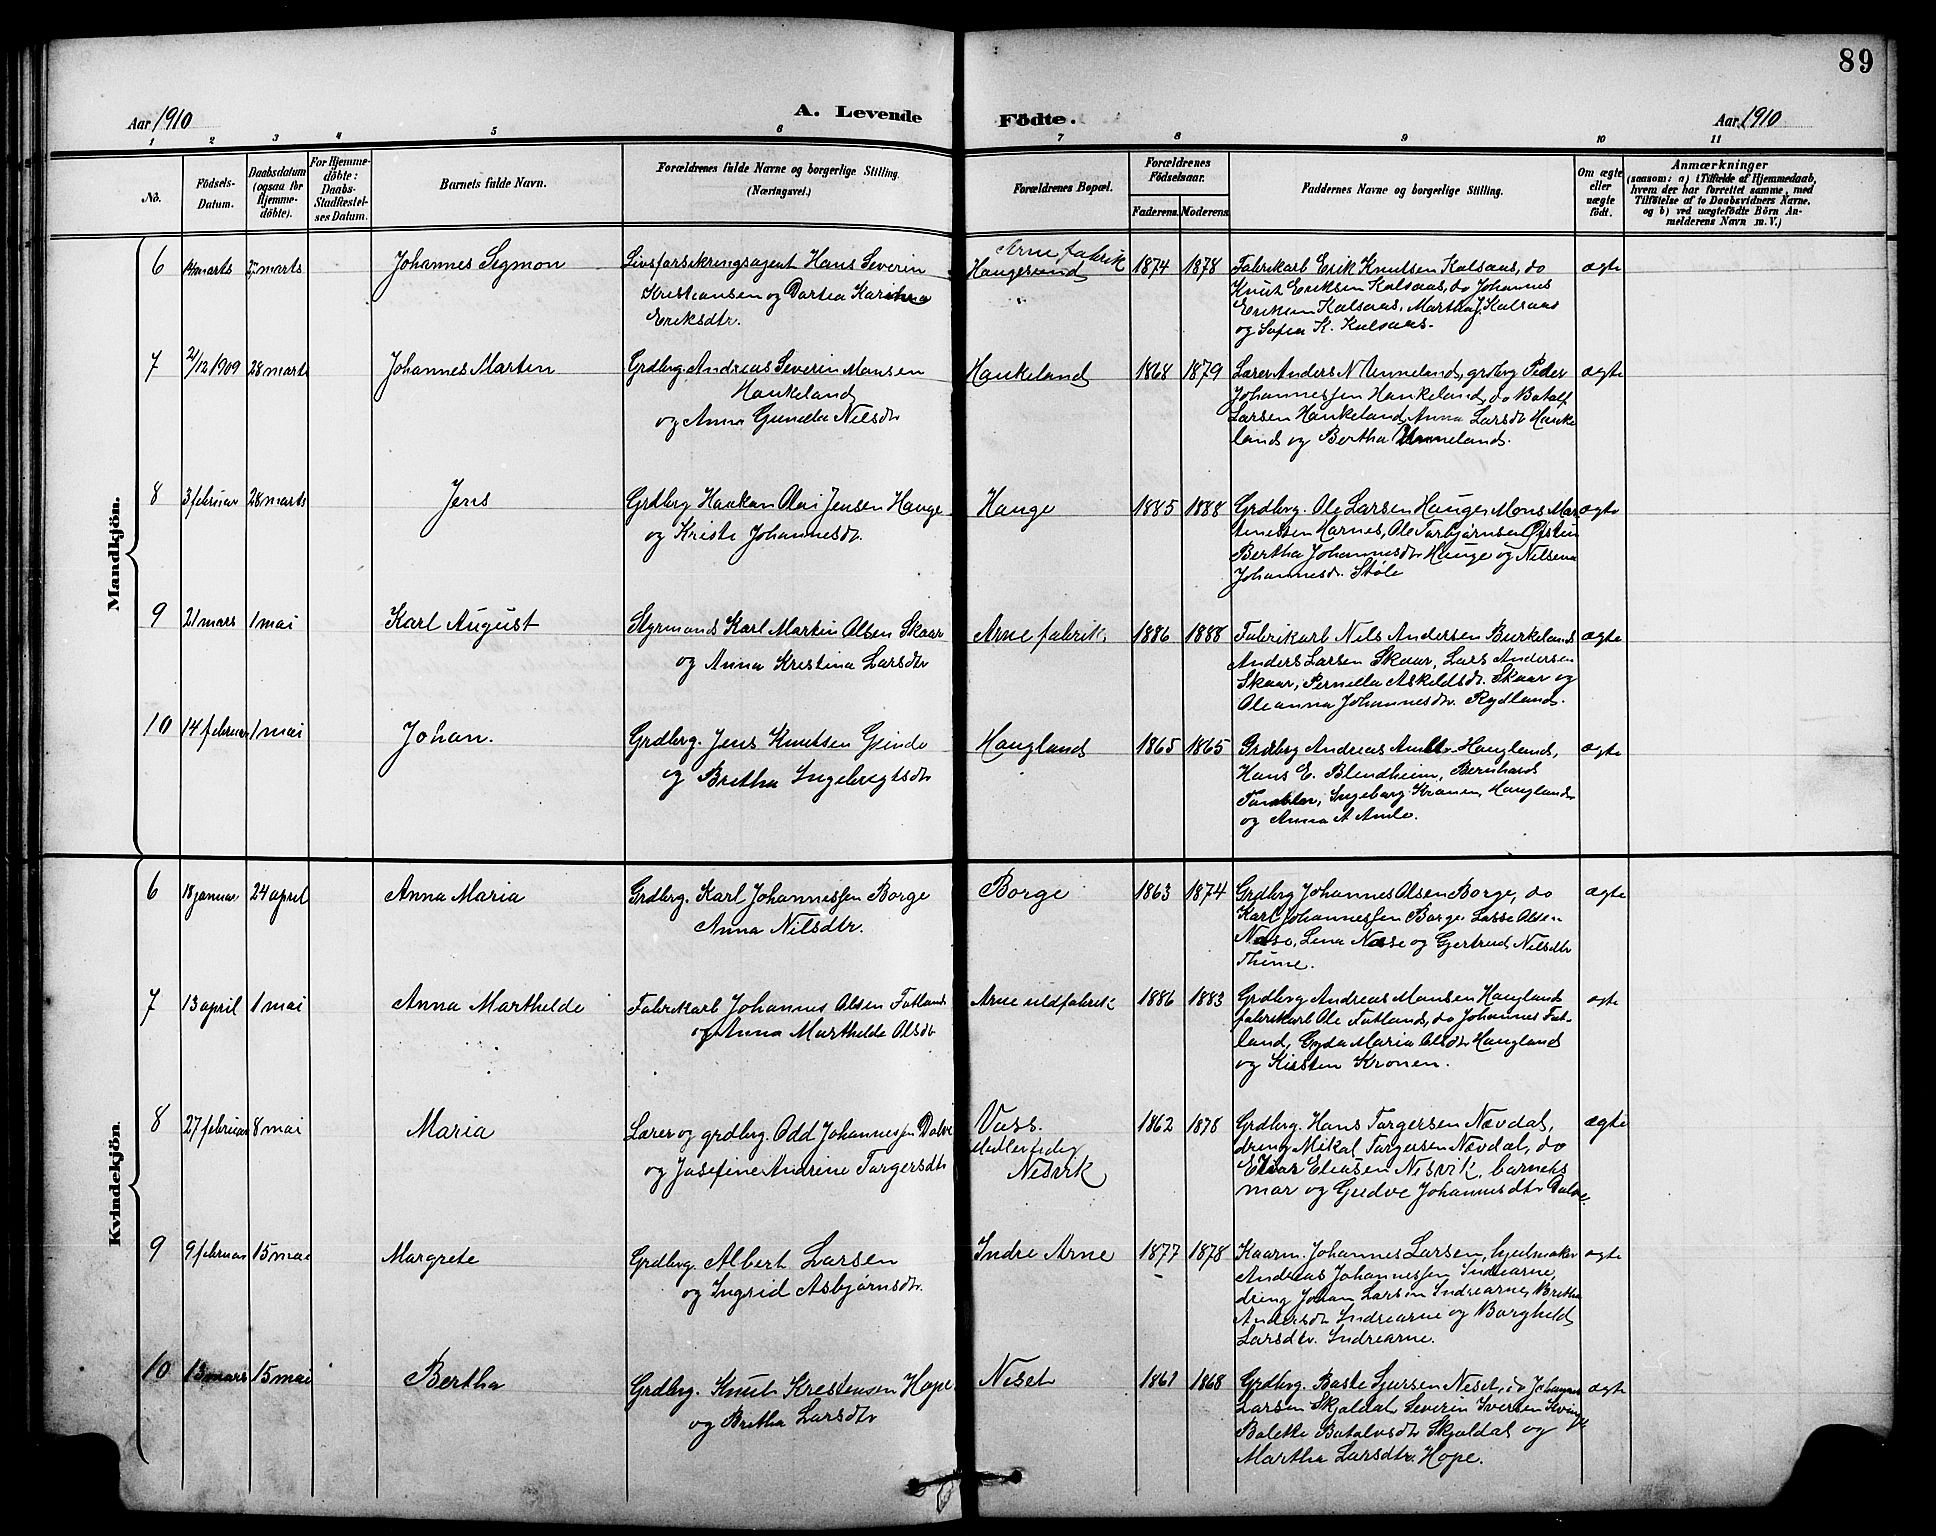 89
Aar 1910
A. Levende Födte.
Aar 1910
1 2 3 4 5 6 7 8 9 10 11
No.
Födsels-
Datum.
Daabsdatum
(ogsaa for
Hjemme-
döbte).
For Hjemme-
döbte:
Daabs-
Stadfæstel-
ses Datum.
Barnets fulde Navn.
Forældrenes fulde Navne og borgerlige Stilling.
(Næringsvei.)
Forældrenes Bopæl.
Forældrenes
Födselsaar.
Faderens. Moderens.
Faddernes Navne og borgerlige Stilling.
Om ægte
eller
uægte
födt.
Anmærkninger
(saasom: a) i Tilfælde af Hjemmedaab,
hvem der har forrettet samme, med
Tilföielse af to Daabsvidners Navne,
og b) ved uægtefödte Börn An-
melderens Navn m. V.)
Mandkjön.
6 marts 27 marts Johannes Sigmon
Livsforsikringsagent Hans Severin
Kristiansen og Dortea Karina
Eriksdtr.
Arne fabrik
Haugesund
1874 1878
Fabrikarb Erik Knutsen Kalsaas, do
Knut Eriksen Kalsaas, do Johannes
Eriksen Kalsaas, Martha J. Kalsaas
og Sofia K. Kalsaas.
ægte
7 2/12 1909 28 marts Johannes Martin
Grdbrg. Andreas Severin Monsen
Haukeland
og Anna Gunilla Nilsdtr
Haukeland
1868 1879
Lærer Anders N Unneland, grdbrg Peder
Johannessen Haukeland, do Botolf
Larsen Haukeland, Anna Larsdtr Hauke
land og Bertha Unneland.
ægte
8 3 februar 28 marts Jens
Grdbrg Haakon Olai Jensen Hauge
og Kristi Johannesdtr.
Hauge
1885 1888
Grdbrg. Ole Larsen Hauge, Mons Mar
tinessen Marnes, Ole Torbjørnsen Øystin
Bertha Johannesdtr Hauge og Nilsena
Johannesdtr. Støle
ægte
9 21 mars 1 mai Karl August
Styrmand Karl Martin Olsen Skaar
og Anna Kristina Larsdtr
Arne fabrik
1886 1888
Fabrikarb Nils Andersen Burkeland
Anders Larsen Skaar, Lars Andersen
Skaar, Pernilla Askeldsdtr. Skaar og
Oleanna Johannesdtr. Rydland.
ægte
10 14 februar 1 mai Johan.
Grdbrg. Jens Knutsen Gjende
og Bretha Ingebrigtsdtr
Haugland
1865 1865
Grdbrg Andreas Haugland,
Hans E. Blendheim, Bernhard
Ingeborg Kronen, Haugland
og Anna A Amle.
ægte
Kvindekjön.
6 18 januar 24 april Anna Maria
Grdbrg. Karl Johannessen Borge
Anna Nilsdtr.
Borge
1863 1874
Grdbrg Johannes Olsen Borge, do
Karl Johannessen Borge. Lasse Olsen
Næse, Lena Næse og Gjertrud Nilsdtr
Thime.
ægte
7 13 april 1 mai Anna Marthilde
Fabrikarb Johannes Olsen Fatland
og Anna Marthilde Olsdtr
Arne uldfabrik
1886 1883
Grdbrg Andreas Monsen Haugland
fabrikarb Ole Fatland, do Johannes Fat-
land, Gyda Maria Olsdtr Haugland
og Kirsten Kronen.
ægte
8 27 februar 8 mai Maria
Lærer og grdbrg. Odd Johannessen Dolve
og Josefine Andrine Torgersdtr
Voss.
Midlertidig
Nesvik
1862 1878
Grdbrg. Hans Torgersen Nævdal,
dreng Mikal Torgersen Nævdal, do
Eliasen Nesvik, barnets
mor og Gudve Johannesdtr Dolve
ægte
9 9 februar 15 mai Margrete
Grdbrg. Albert Larsen
og Ingrid Asbjørnsdtr.
Indre Arne
1877 1878
Kaarm. Johannes Larsen, hjulmaker
Andreas Johannessen Indrearne,
dreng Johan Larsen Indrearne, Bretha
Andersdtr Indrearne og Borghild
Larsdtr. Indrearne.
ægte
10 13 mars 15 mai Bertha
Grdbrg. Knut Kristensen Hope
og Bretha Larsdtr
Neset
1861 1868
Grdbrg. Baste Sjursen Neset, do Johannes
Larsen Skjoldal Severin Iversen
Bolette Botolvsdtr Skjoldal og
Martha Larsdtr. Hope.
ægte